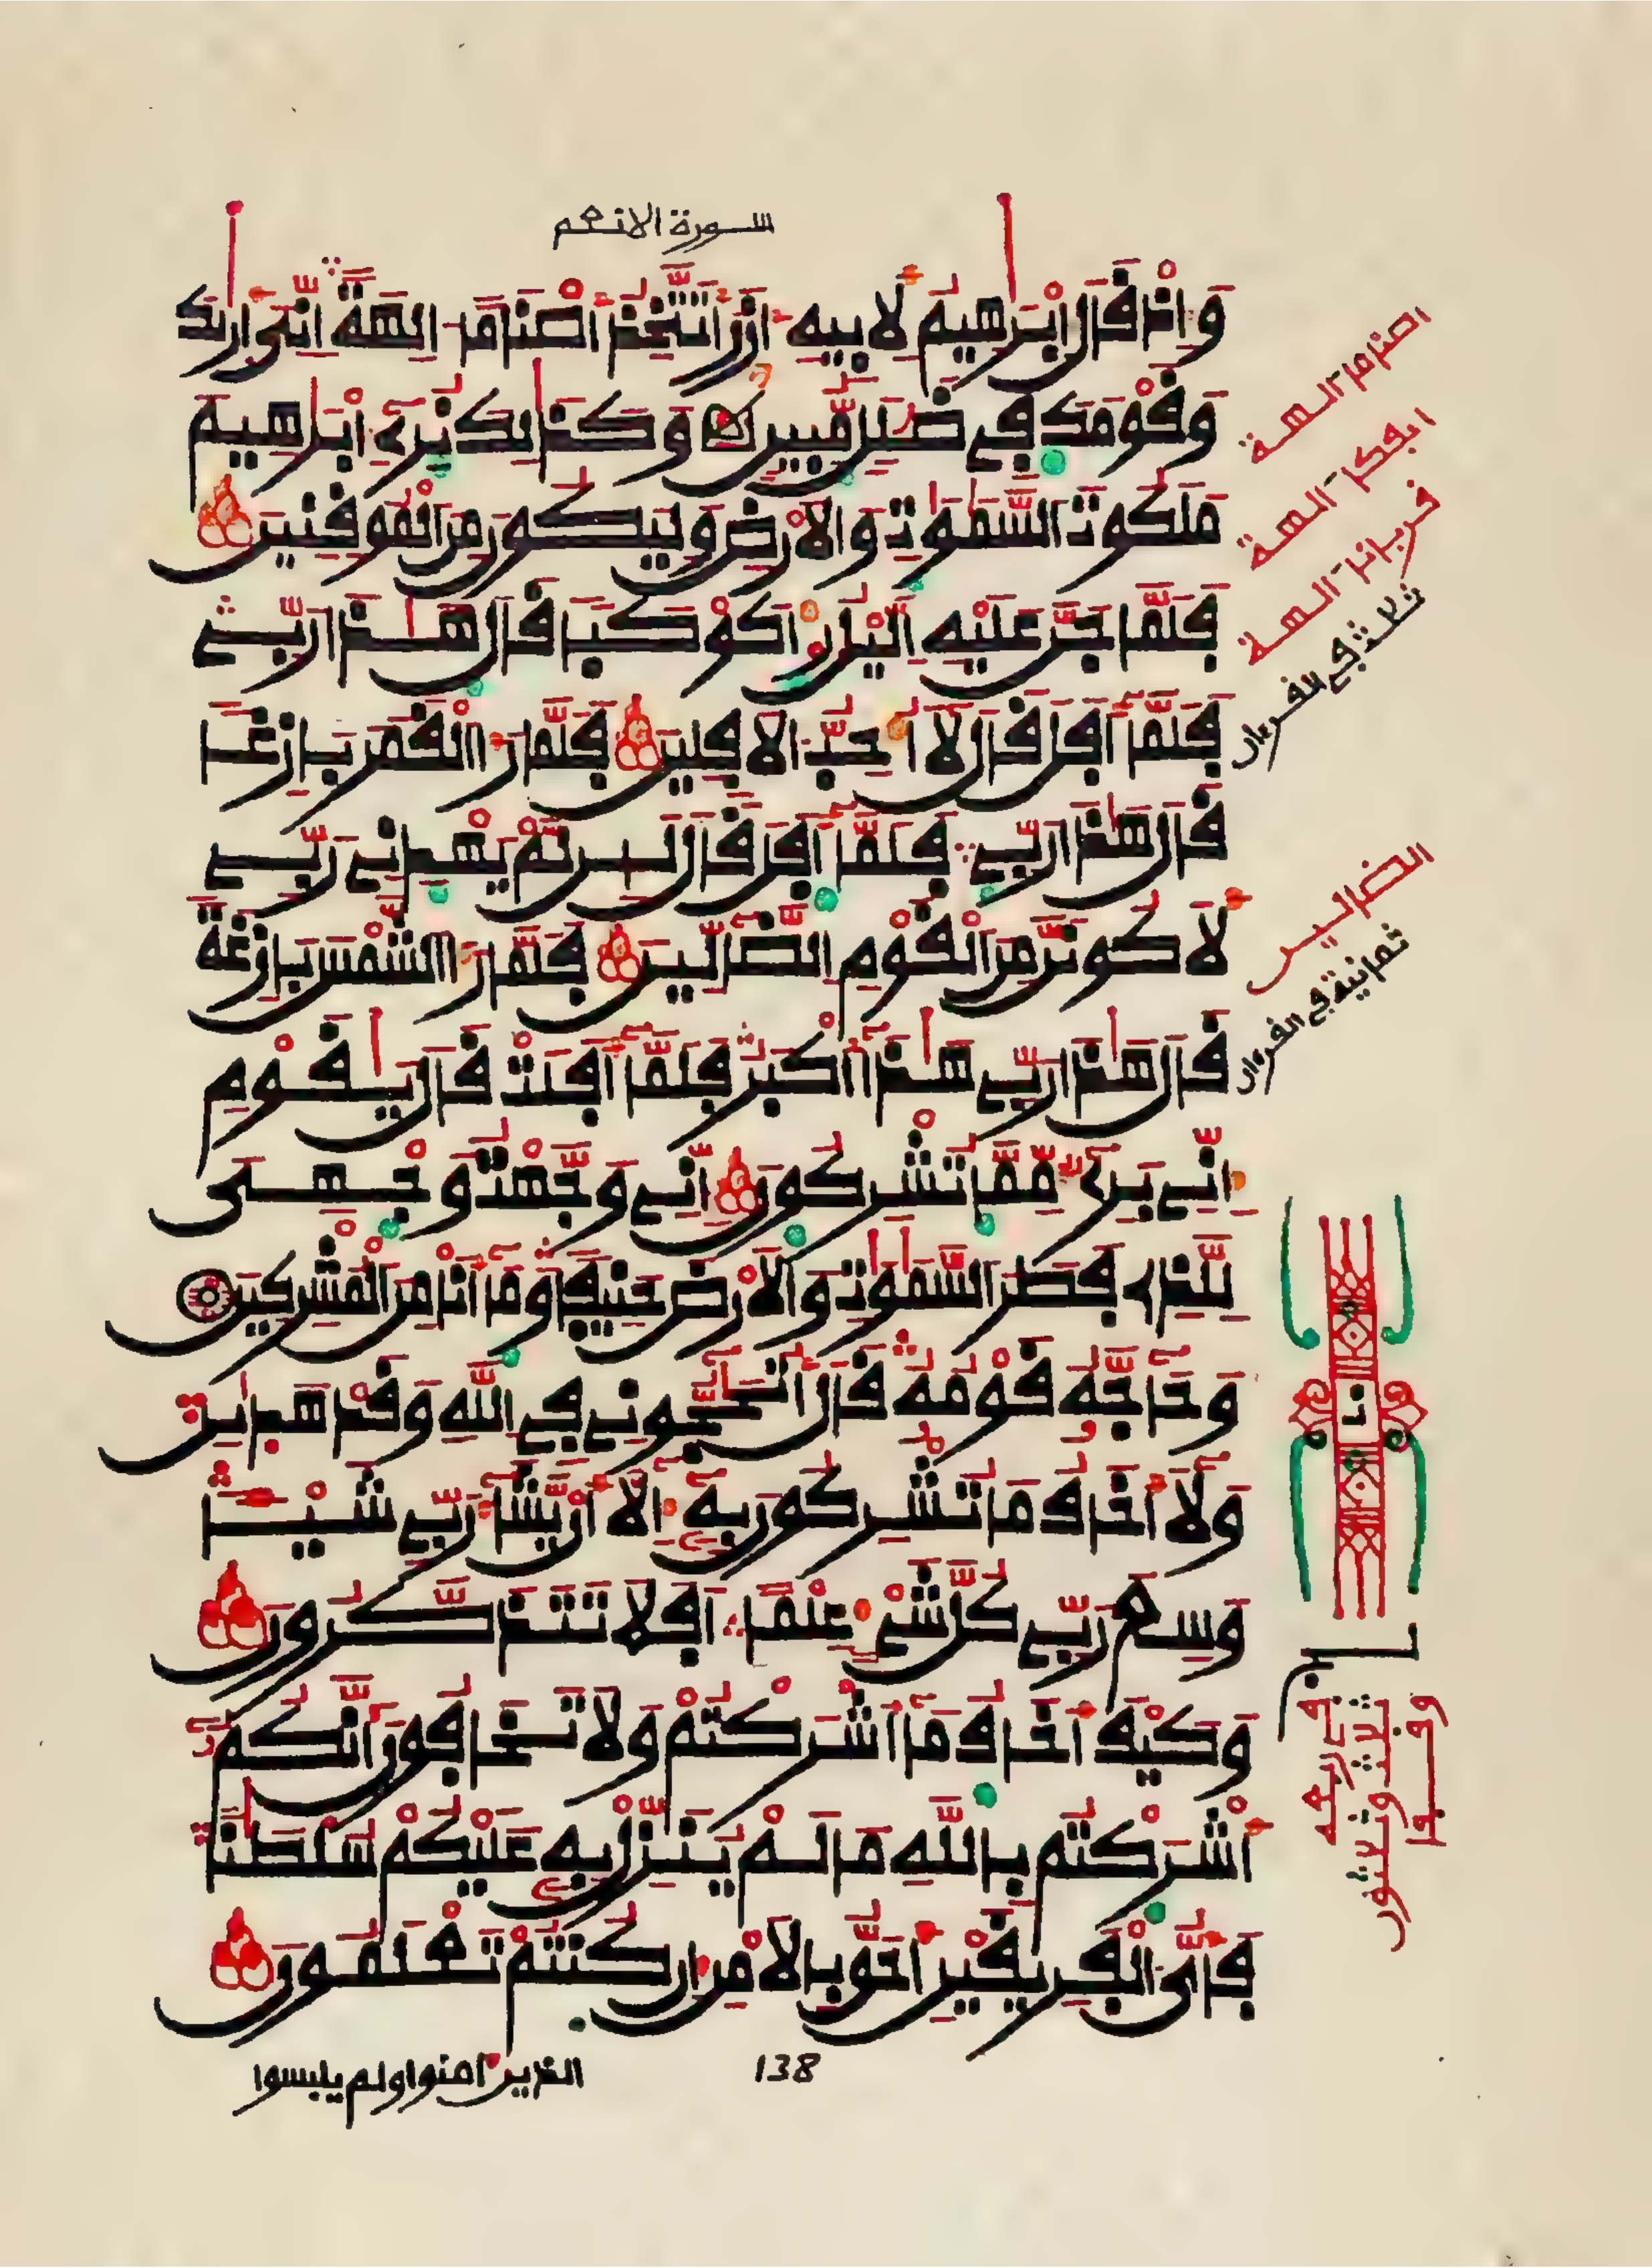 سورة الانعم
وَإِذْ قَالَ إِبْرَٰهِيمُ لِأَبِيهِ ءَازَرَ أَتَتَّخِذُ أَصْنَامًا ـالِهَةً إِنِّيَ أَرَىٰكَ
وَقَوْمَكَ فِي ضَلَٰلٍ مُّبِينٍ وَكَذَٰلِكَ نُرِي إِبْرَٰهِيمَ
مَلَكُوتَ السَّمَٰوَٰتِ وَالْأَرْضِ وَلِيَكُونَ مِنَ الْمُوقِنِينَ
فَلَمَّا جَنَّ عَلَيْهِ الَّيْلُ رَءَا كَوْكَبًا قَالَ هَٰذَا رَبِّي
فَلَمَّا أَفَلَ قَالَ لَا أُحِبُّ الْآفِلِينَ فَلَمَّا رَءَا الْقَمَرَ بَازِغًا
قَالَ هَٰذَا رَبِّي فَلَمَّا أَفَلَ قَالَ لَئِن لَّمْ يَهْدِنِي رَبِّي
لَأَكُونَنَّ مِنَ الْقَوْمِ الضَّالِّينَ فَلَمَّا رَءَا الشَّمْسَ بَازِغَةً
قَالَ هَٰذَا رَبِّي هَٰذَا أَكْبَرُ فَلَمَّا أَفَلَتْ قَالَ يَٰقَوْمِ
إِنِّي بَرِيءٌ مِّمَّا تُشْرِكُونَ إِنِّي وَجَّهْتُ وَجْهِيَ
لِلَّذِي فَطَرَ السَّمَٰوَٰتِ وَالْأَرْضَ حَنِيفًا وَمَا أَنَا مِنَ الْمُشْرِكِينَ
وَحَاجَّهُ قَوْمُهُ قَالَ أَتُحَٰجُّونِي فِي اللَّهِ وَقَدْ هَدَىٰنِ
وَلَا أَخَافُ مَا تُشْرِكُونَ بِهِ إِلَّا أَن يَّشَاءَ رَبِّي شَيْـًٔا
وَسِعَ رَبِّي كُلَّ شَيْءٍ عِلْمًا أَفَلَا تَتَذَكَّرُونَ
وَكَيْفَ أَخَافُ مَا أَشْرَكْتُمْ وَلَا تَخَافُونَ أَنَّكُمُ
أَشْرَكْتُم بِاللَّهِ مَا لَمْ يُنَزِّلْ بِهِ عَلَيْكُمْ سُلْطَٰنًا
فَأَيُّ الْفَرِيقَيْنِ أَحَقُّ بِالْأَمْنِ إِن كُنتُمْ تَعْلَمُونَ
138
الذين ءامنوا ولم يلبسوا
اصناما ـالهة
ايفكا ـالهة
قربانا ـالهة
ثلاثة في القرءان
الضالين
ثمانية في القرءان
في ربعه
ثلاث وثلاثون
وقفا